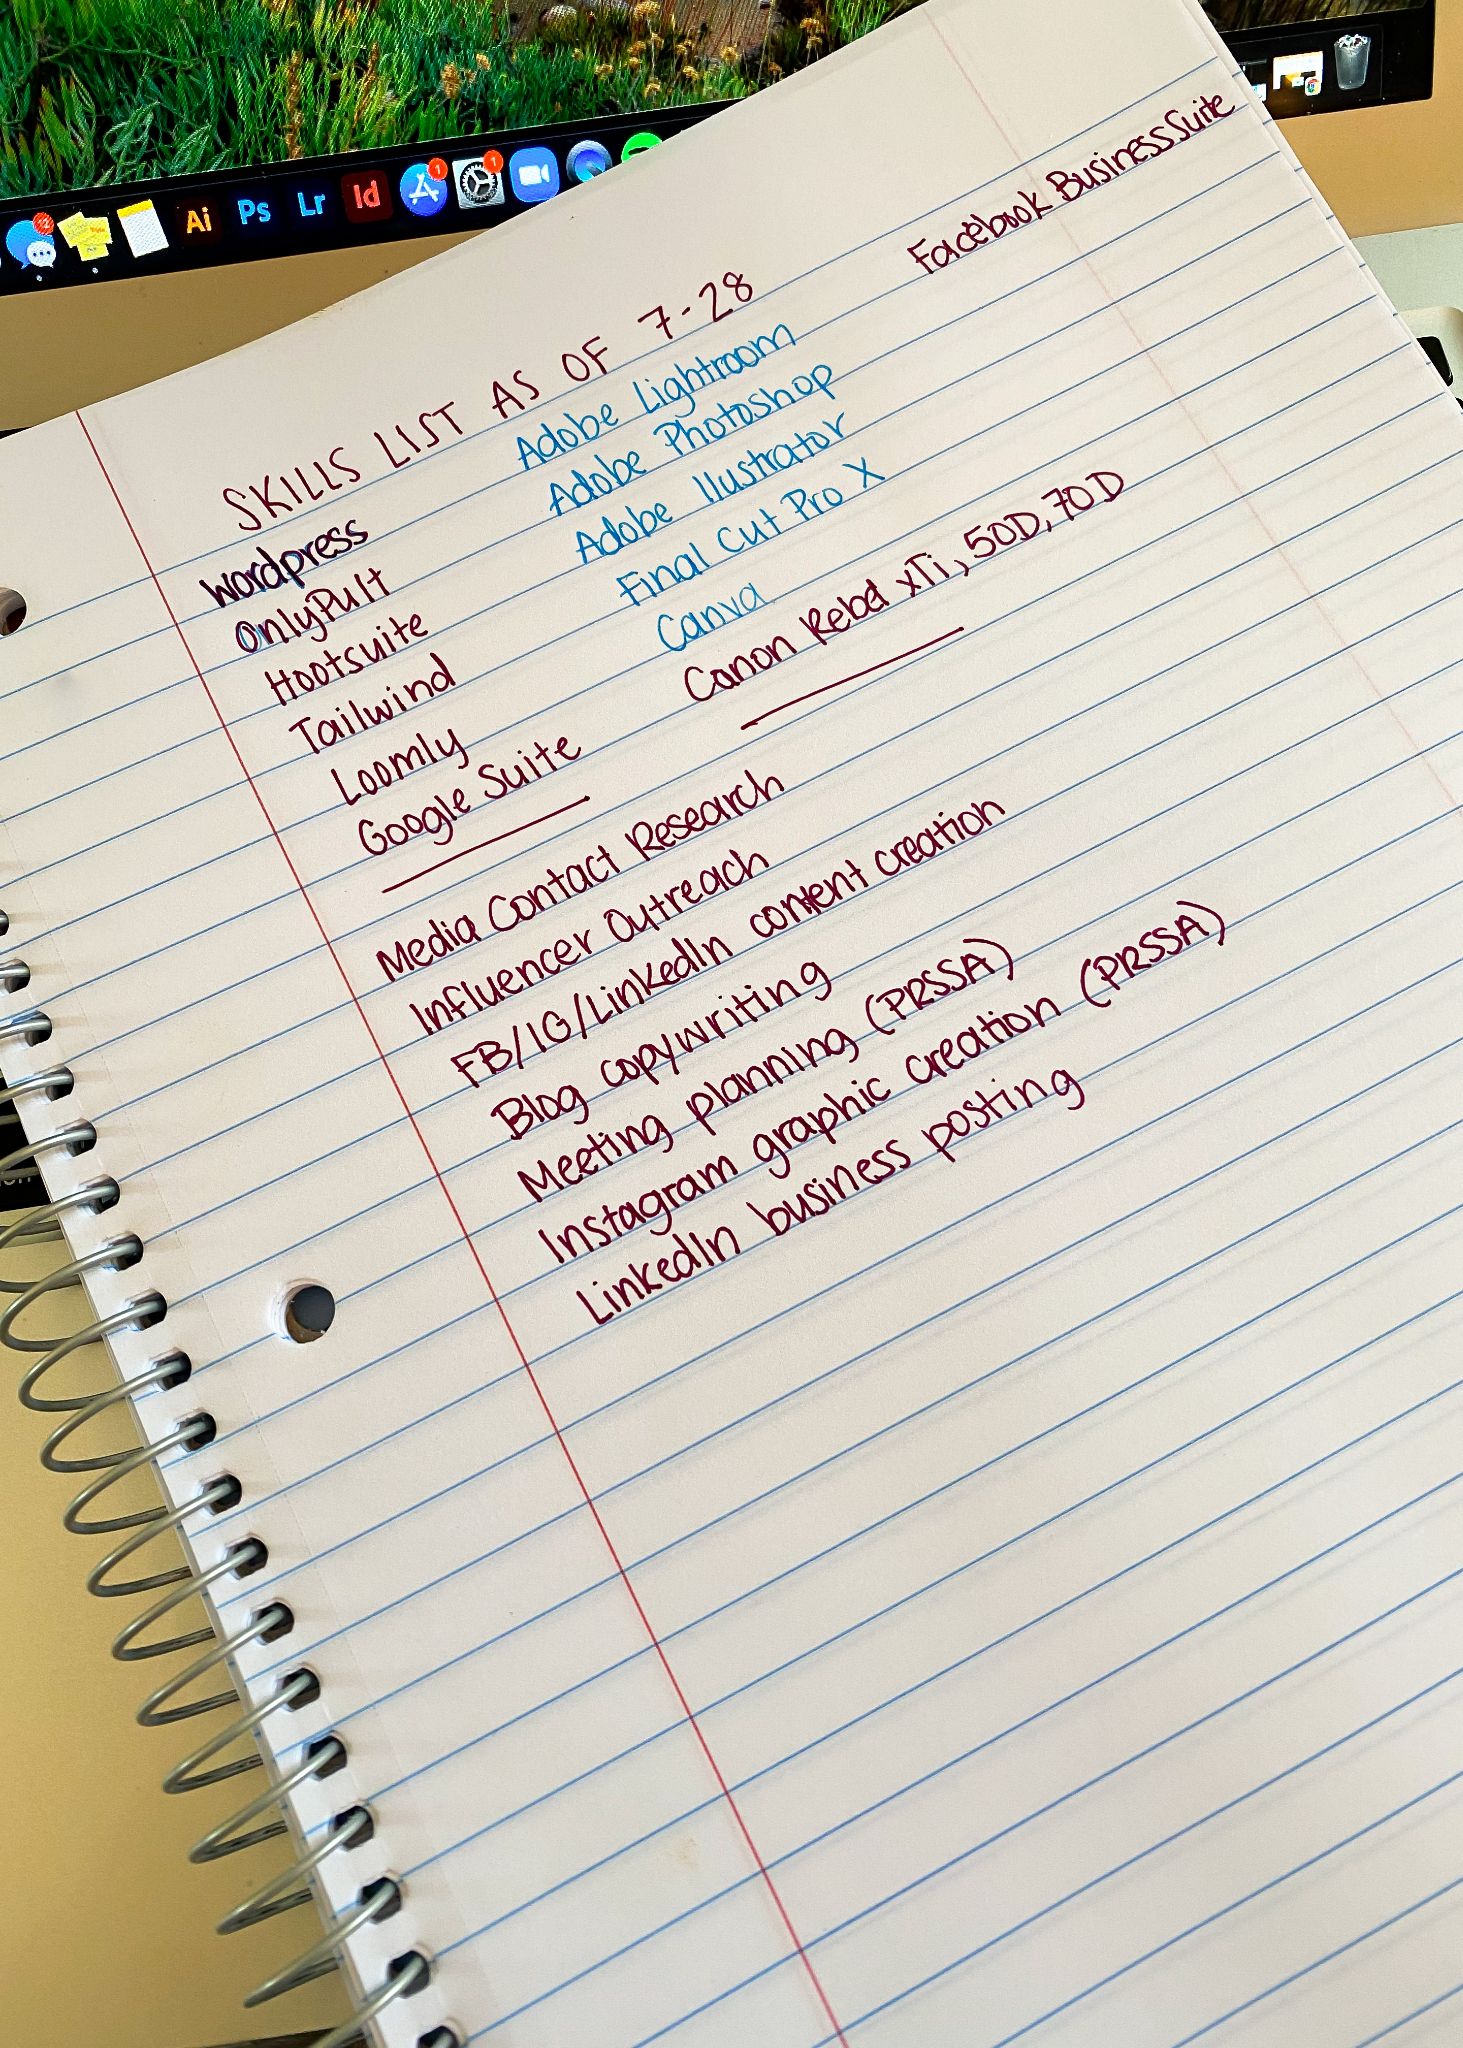 Ai Ps Lr Id
12
1
1
Facebook Business Suite
SKILLS LIST AS OF 7-28
Wordpress
OnlyPult
Hootsuite
Tailwind
Loomly
Google Suite
Adobe Lightroom
Adobe Photoshop
Adobe Ilustrator
Final Cut Pro X
Canva
Canon Rebel xTi, 50D, 70D
Media Contact Research
Influencer Outreach
FB/IG/LinkedIn content creation
Blog copywriting
Meeting planning (PRSSA)
Instagram graphic creation (PRSSA)
LinkedIn business posting